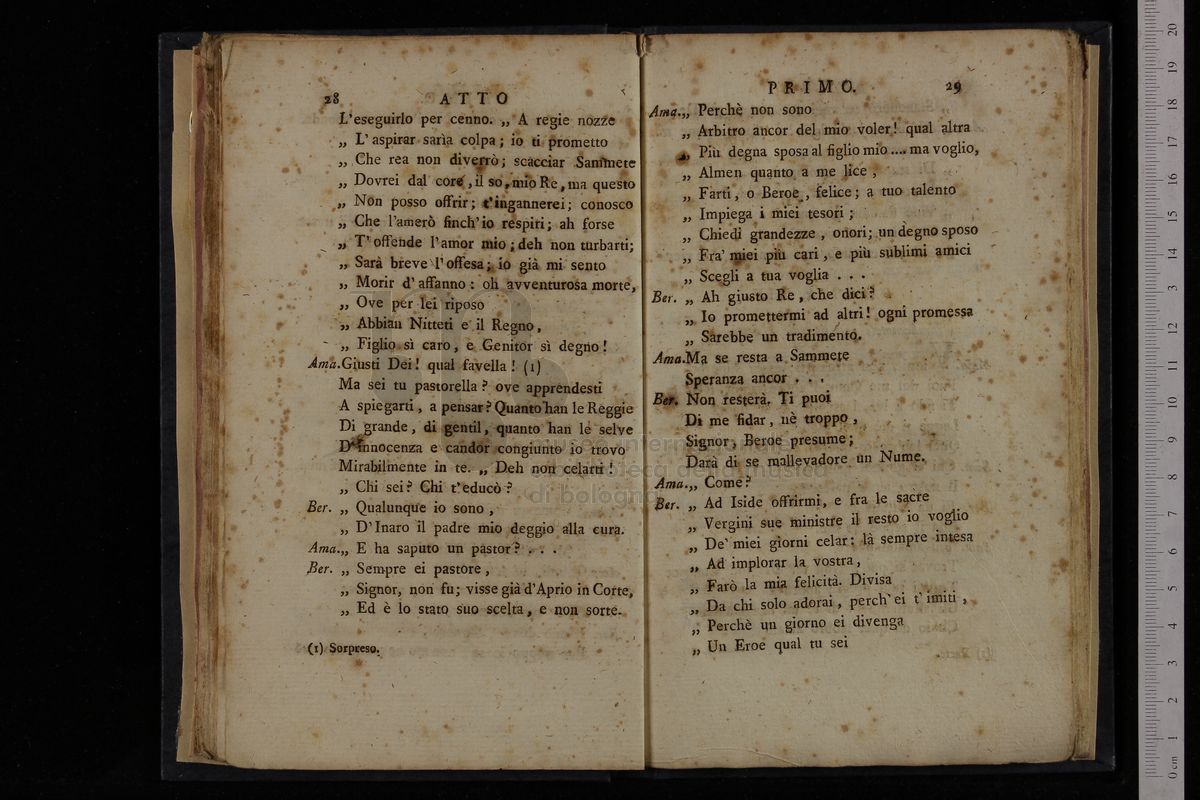 28 ATTO
L'eseguirlo per cenno. „ A regie nozze
„ L'aspirar sarìa colpa; io ti prometto
„ Che rea non diverrò; scacciar Sammete
„ Dovrei dal core, il so, mio Re, ma questo
„ Non posso offrir; t'ingannerei; conosco
„ Che l'amerò finch'io respiri; ah forse
„ T'offende l'amor mio; deh non turbarti;
„ Sarà breve l'offesa; io già mi sento
„ Morir d'affanno: oh avventurosa morte,
„ Ove per lei riposo
„ Abbian Nitteti e il Regno,
„ Figlio sì caro, e Genitor sì degno!
Ama. Giusti Dei! qual favella! (1)
Ma sei tu pastorella? ove apprendesti
A spiegarti, a pensar? Quanto han le Reggie
Di grande, di gentil, quanto han le selve
D'innocenza e candor congiunto io trovo
Mirabilmente in te. „ Deh non celarti!
„ Chi sei? Chi t'educò?
Ber. „ Qualunque io sono,
„ D'Inaro il padre mio deggio alla cura.
Ama. „ E ha saputo un pastor? . . .
Ber. „ Sempre ei pastore,
„ Signor, non fu; visse già d'Aprio in Corte,
„ Ed è lo stato suo scelta, e non sorte.
(1) Sorpreso.
PRIMO. 29
Ama. „ Perchè non sono
„ Arbitro ancor del mio voler! qual altra
„ Più degna sposa al figlio mio .... ma voglio,
„ Almen quanto a me lice,
„ Farti, o Beroe, felice; a tuo talento
„ Impiega i miei tesori;
„ Chiedi grandezze, onori; un degno sposo
„ Fra' miei più cari, e più sublimi amici
„ Scegli a tua voglia . . .
Ber. „ Ah giusto Re, che dici?
„ Io promettermi ad altri! ogni promessa
„ Sarebbe un tradimento.
Ama. Ma se resta a Sammete
Speranza ancor . . .
Ber. Non resterà. Ti puoi
Di me fidar, nè troppo,
Signor, Beroe presume;
Darà di se mallevadore un Nume.
Ama. „ Come?
Ber. „ Ad Iside offrirmi, e fra le sacre
„ Vergini sue ministre il resto io voglio
„ De' miei giorni celar: là sempre intesa
„ Ad implorar la vostra,
„ Farò la mia felicità. Divisa
„ Da chi solo adorai, perch'ei t'imiti,
„ Perchè un giorno ei divenga
„ Un Eroe qual tu sei